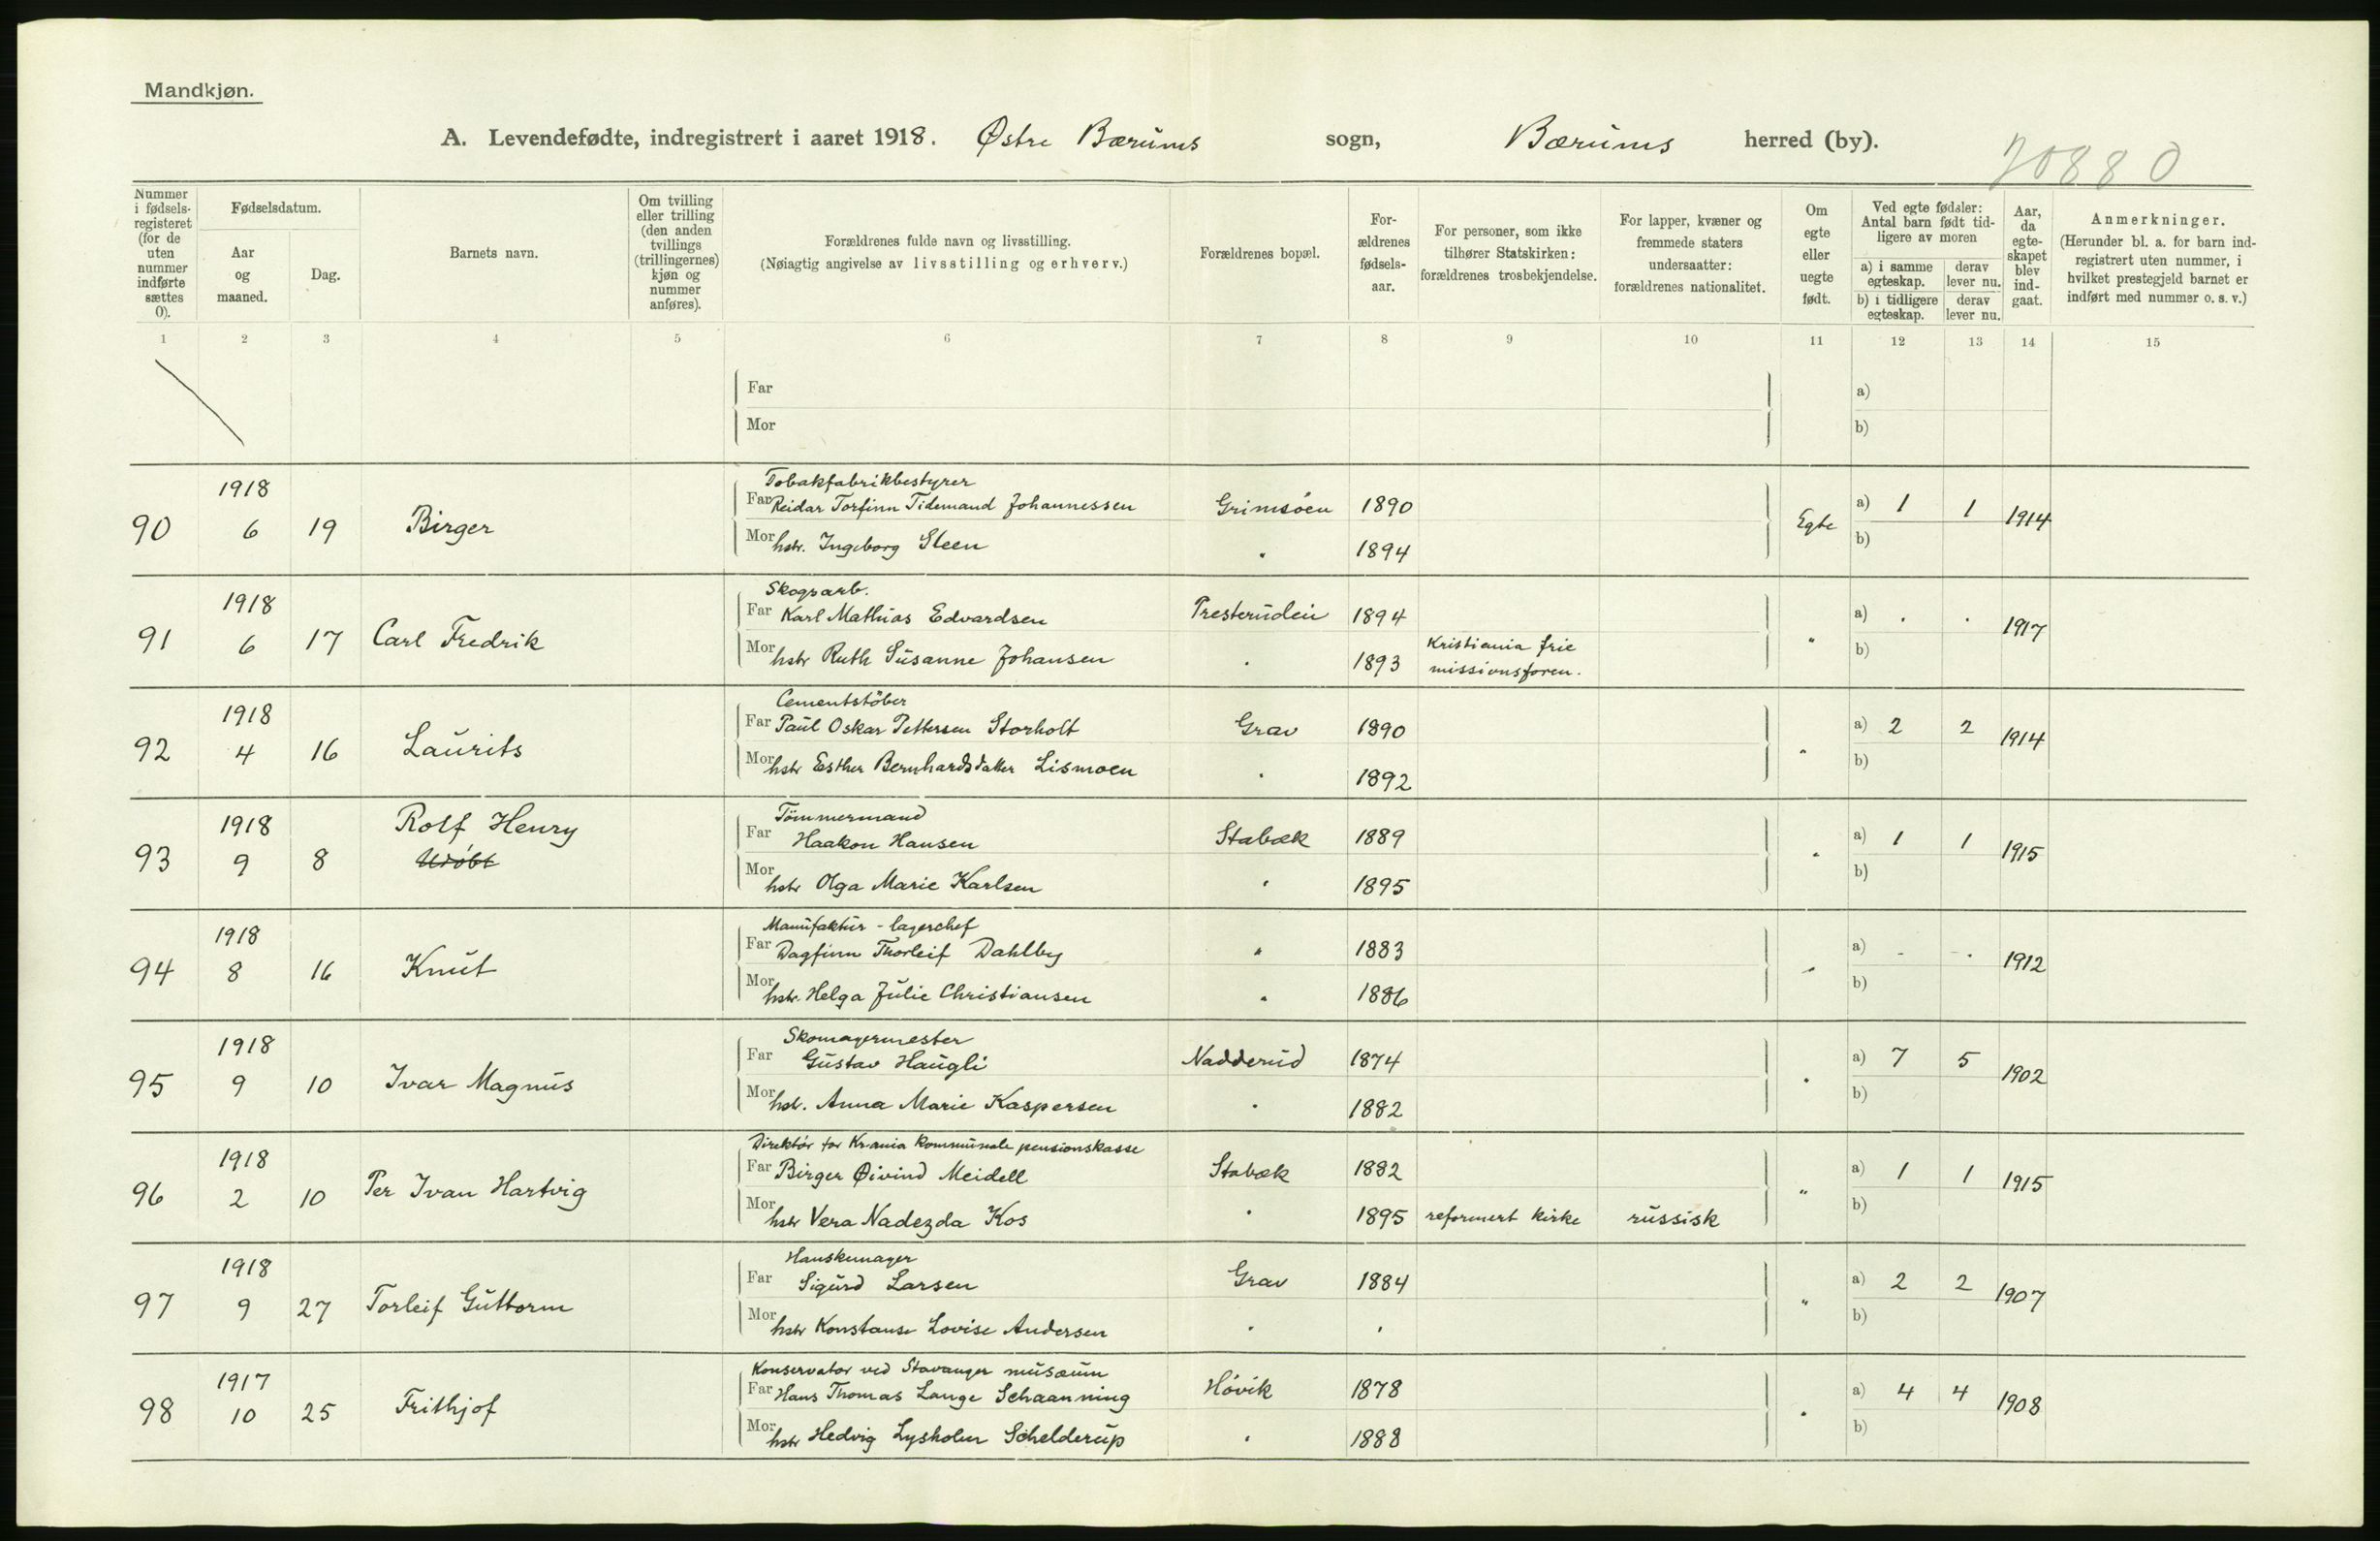 Mandkjøn.
A. Levendefødte, indregistrert i aaret 1918. Østre Bærums sogn, Bærums herred (by).
20880
Nummer i fødsels- registeret (for de uten nummer indførte sættes 0).
Fødselsdatum.
Aar og maaned.
Dag.
Barnets navn.
Om tvilling eller trilling (den anden tvillings (trillingernes) kjøn og nummer anføres).
Forældrenes fulde navn og livsstilling.
(Nøiagtig angivelse av livsstilling og erhverv.)
Forældrenes bopæl.
For- ældrenes fødsels- aar.
For personer, som ikke tilhører Statskirken: forældrenes trosbekjendelse.
For lapper, kvæner og fremmede staters undersaatter: forældrenes nationalitet.
Om egte eller uegte født.
Ved egte fødsler: Antal barn født tid- ligere av moren
a) i samme egteskap. derav lever nu.
b) i tidligere egteskap. derav lever nu.
Aar, da egte- skapet blev ind- gaat.
Anmerkninger.
(Herunder bl. a. for barn ind- registrert uten nummer, i hvilket prestegjeld barnet er indført med nummer o. s. v.)
1 2 3 4 5 6 7 8 9 10 11 12 13 14 15
Far a)
Mor b)
1918 Tobakfabrikbestyrer
90 6 19 Birger Far Reidar Torfinn Tidemand Johannessen Grimsöen 1890 Egte a) 1 1 1914
Mor hstr. Ingeborg Steen " 1894 b)
1918 Skogsarb.
91 6 17 Carl Fredrik Far Karl Mathias Edvardsen Presterudein 1894 " a) . . 1917
Mor hstr Ruth Susanne Johansen " 1893 Kristiania frie missionsforen. b)
1918 Cementstöber
92 4 16 Laurits Far Paul Oskar Pettersen Storholt Grav 1890 " a) 2 2 1914
Mor hstr Esther Bernhardsdatter Lismoen " 1892 b)
1918 Rolf Henry Tömmermand
93 9 8 Udöbt Far Haakon Hansen Stabæk 1889 " a) 1 1 1915
Mor hstr Olga Marie Karlsen " 1895 b)
1918 Manufaktur-lagerchef
94 8 16 Knut Far Dagfinn Thorleif Dahlby " 1883 " a) - . 1912
Mor hstr. Helga Julie Christiansen " 1886 b)
1918 Skomagermester
95 9 10 Ivar Magnus Far Gustav Haugli Nadderud 1874 " a) 7 5 1902
Mor hst. Anna Marie Kaspersen " 1882 b)
1918 Direktör for Kr.ania kommunale pensionskasse
96 2 10 Per Ivan Hartvig Far Birger Øivind Meidell Stabæk 1882 " a) 1 1 1915
Mor hstr Vera Nadezda Kos " 1895 reformert kirke russisk b)
1918 Hanskemager
97 9 27 Torleif Guttorm Far Sigurd Larsen Grav 1884 " a) 2 2 1907
Mor hstr Konstanse Lovise Andersen " . b)
1917 Konservator ved Stavanger musæum
98 10 25 Frithjof Far Hans Thomas Lange Schaanning Hövik 1878 " a) 4 4 1908
Mor hstr Hedvig Lysholm Schelderup " 1888 b)